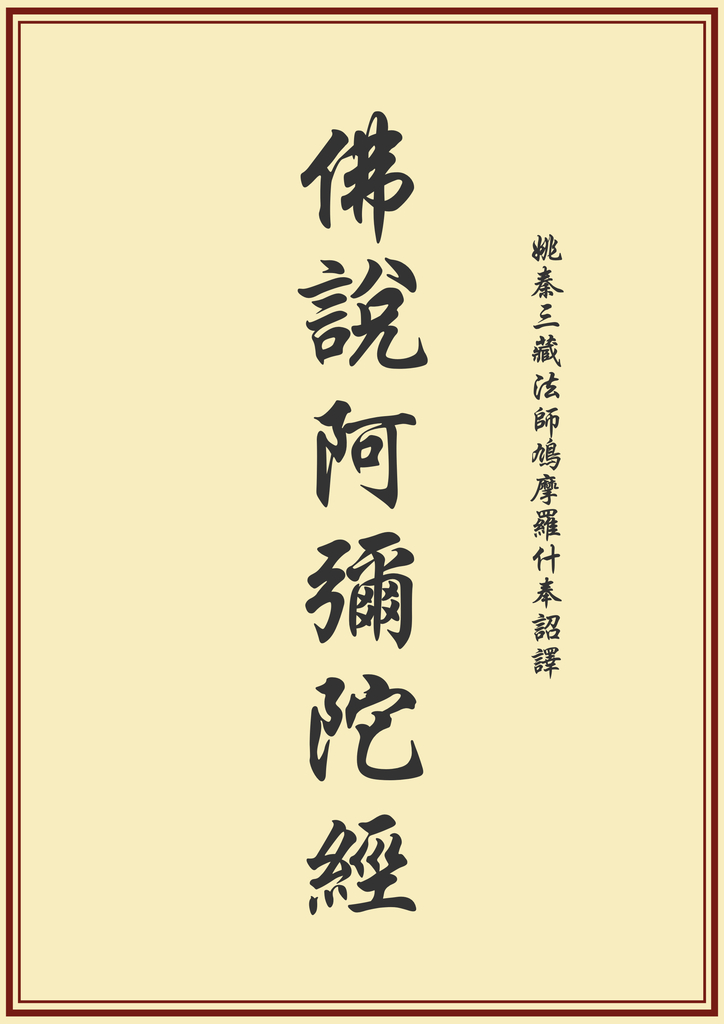 姚秦三藏法師鳩摩羅什奉詔譯
佛說阿彌陀經